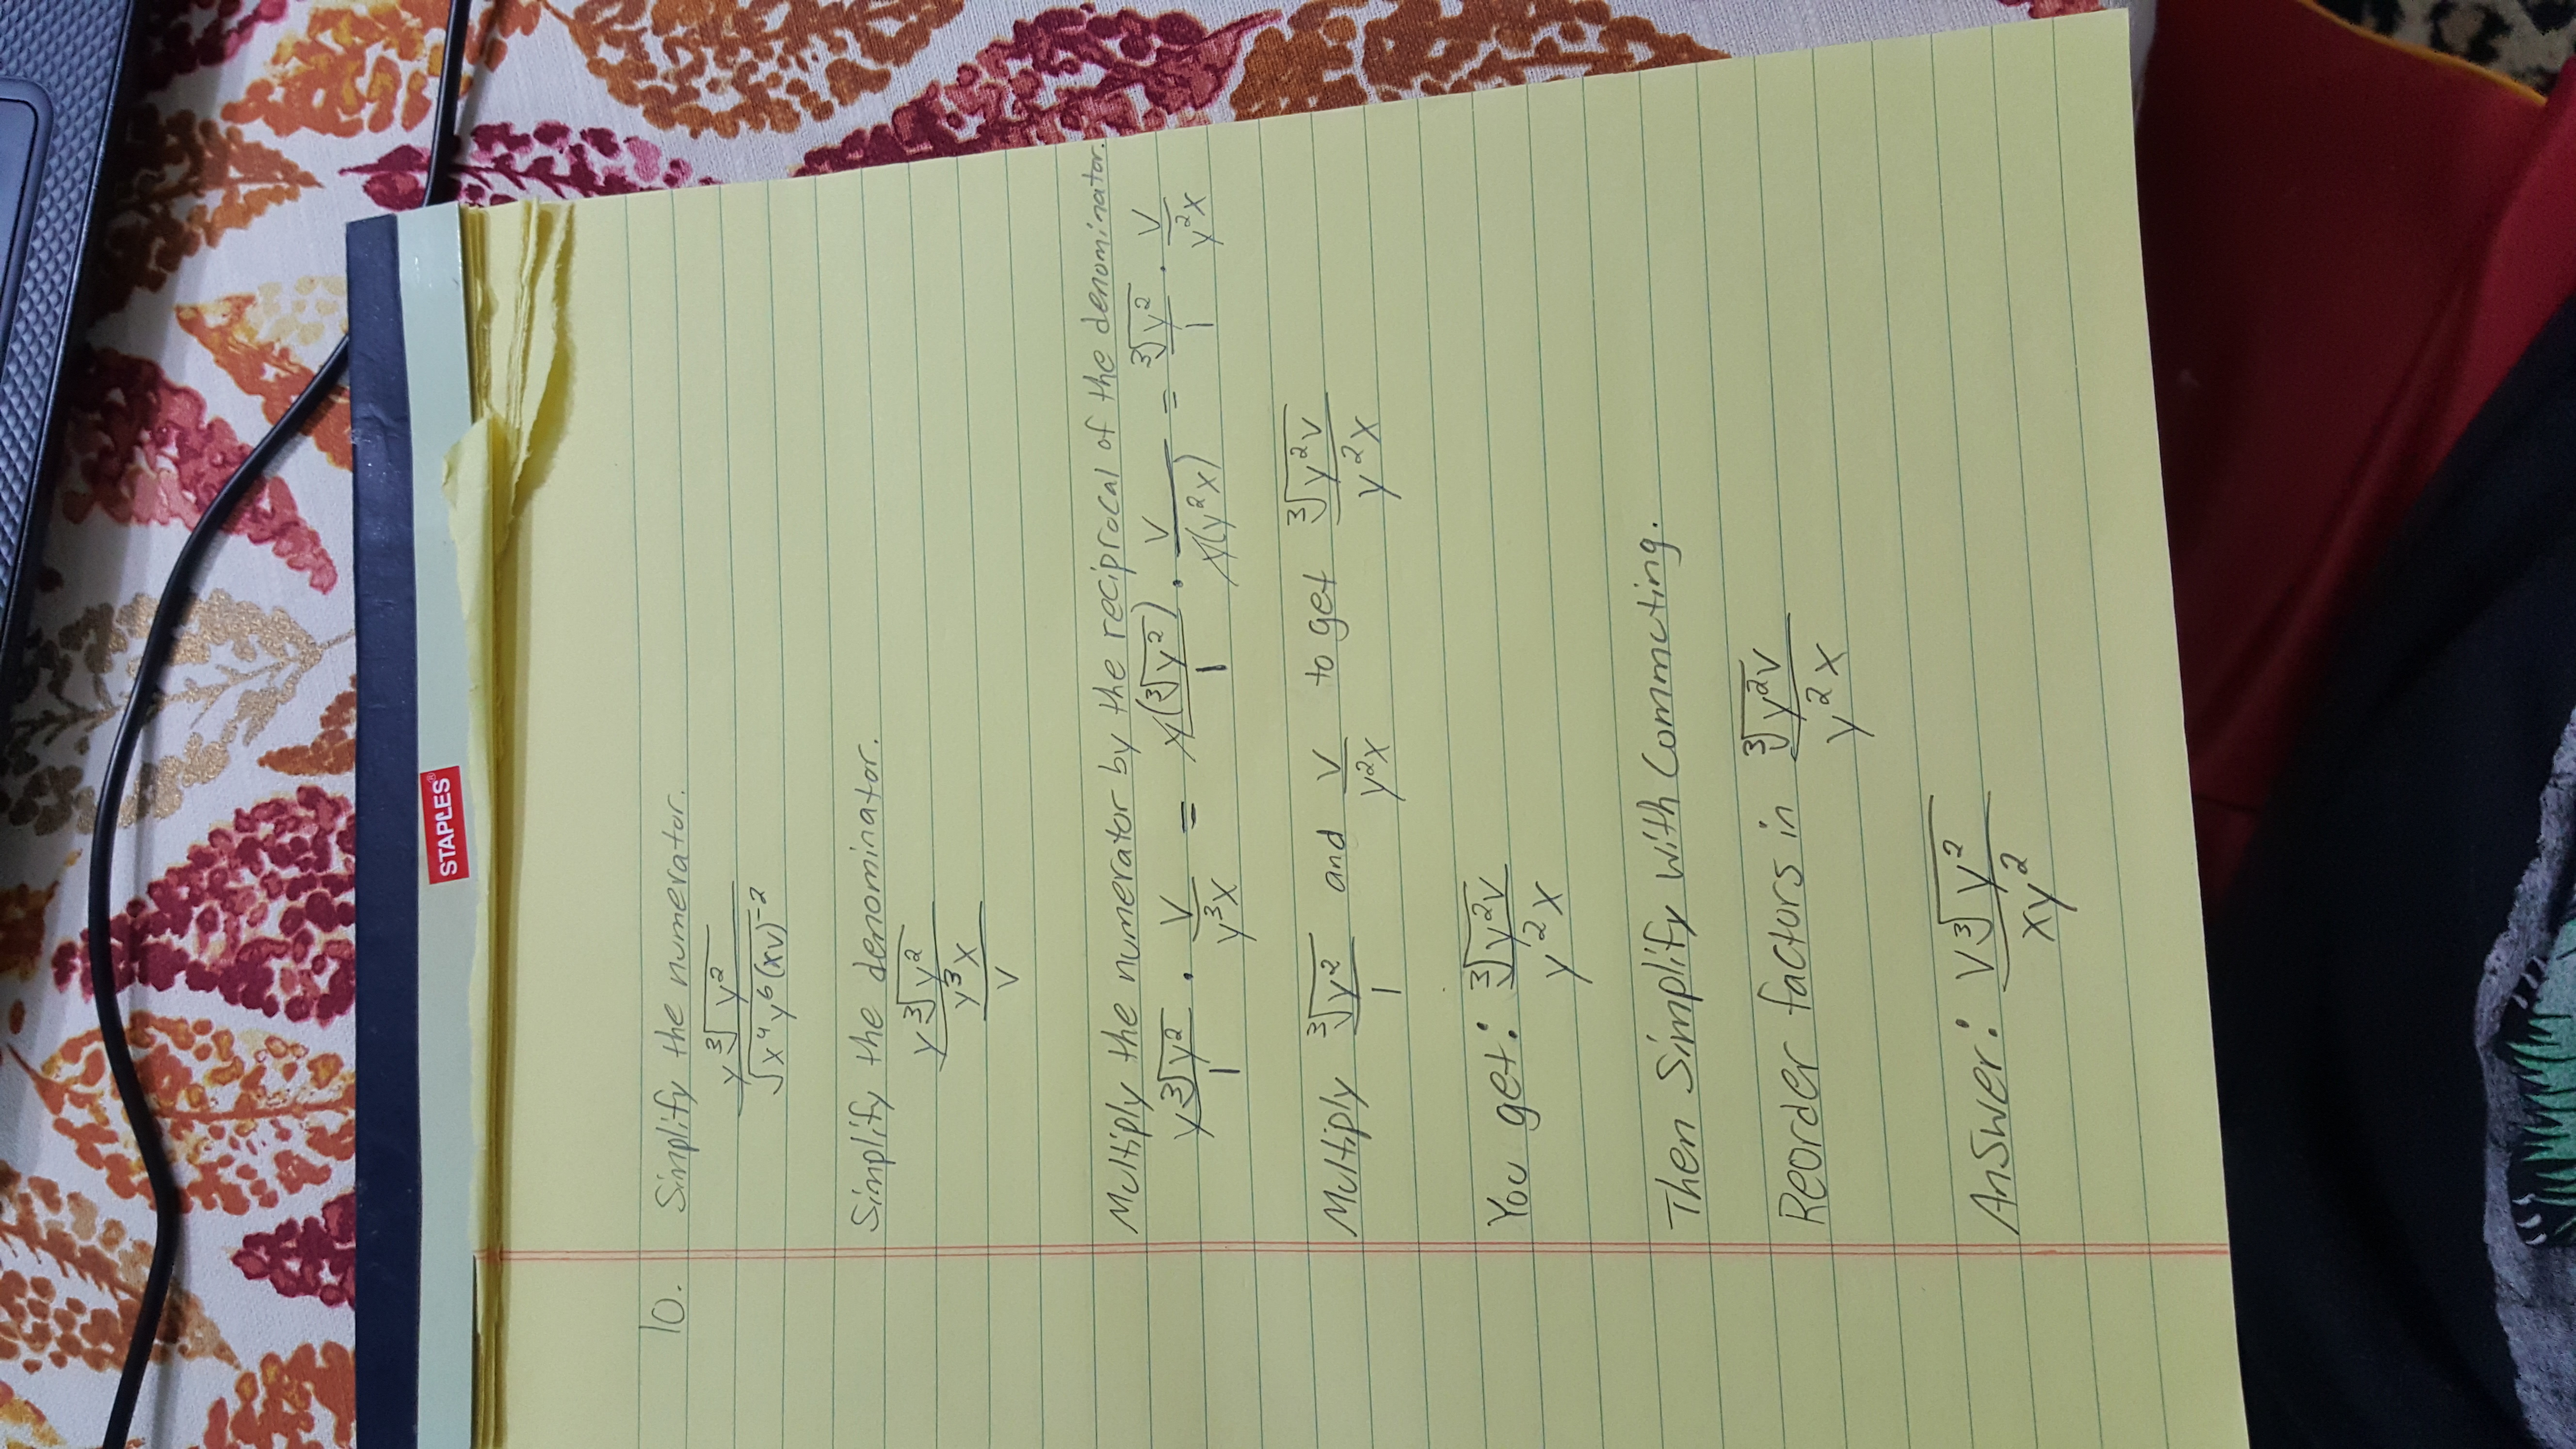 STAPLES®
10. Simplify the numerator.
y∛y² / √x⁴y⁶(xv)⁻²
Simplify the denominator.
y∛y² / y³x / v
Multiply the numerator by the reciprocal of the denominator.
y∛y² / 1 · v / y³x = y(∛y²) / 1 · v / y(y²x) = ∛y² / 1 · v / y²x
Multiply ∛y² / 1 and v / y²x to get ∛y²v / y²x
You get: ∛y²v / y²x
Then Simplify with Commuting.
Reorder factors in ∛y²v / y²x
Answer: v∛y² / xy²